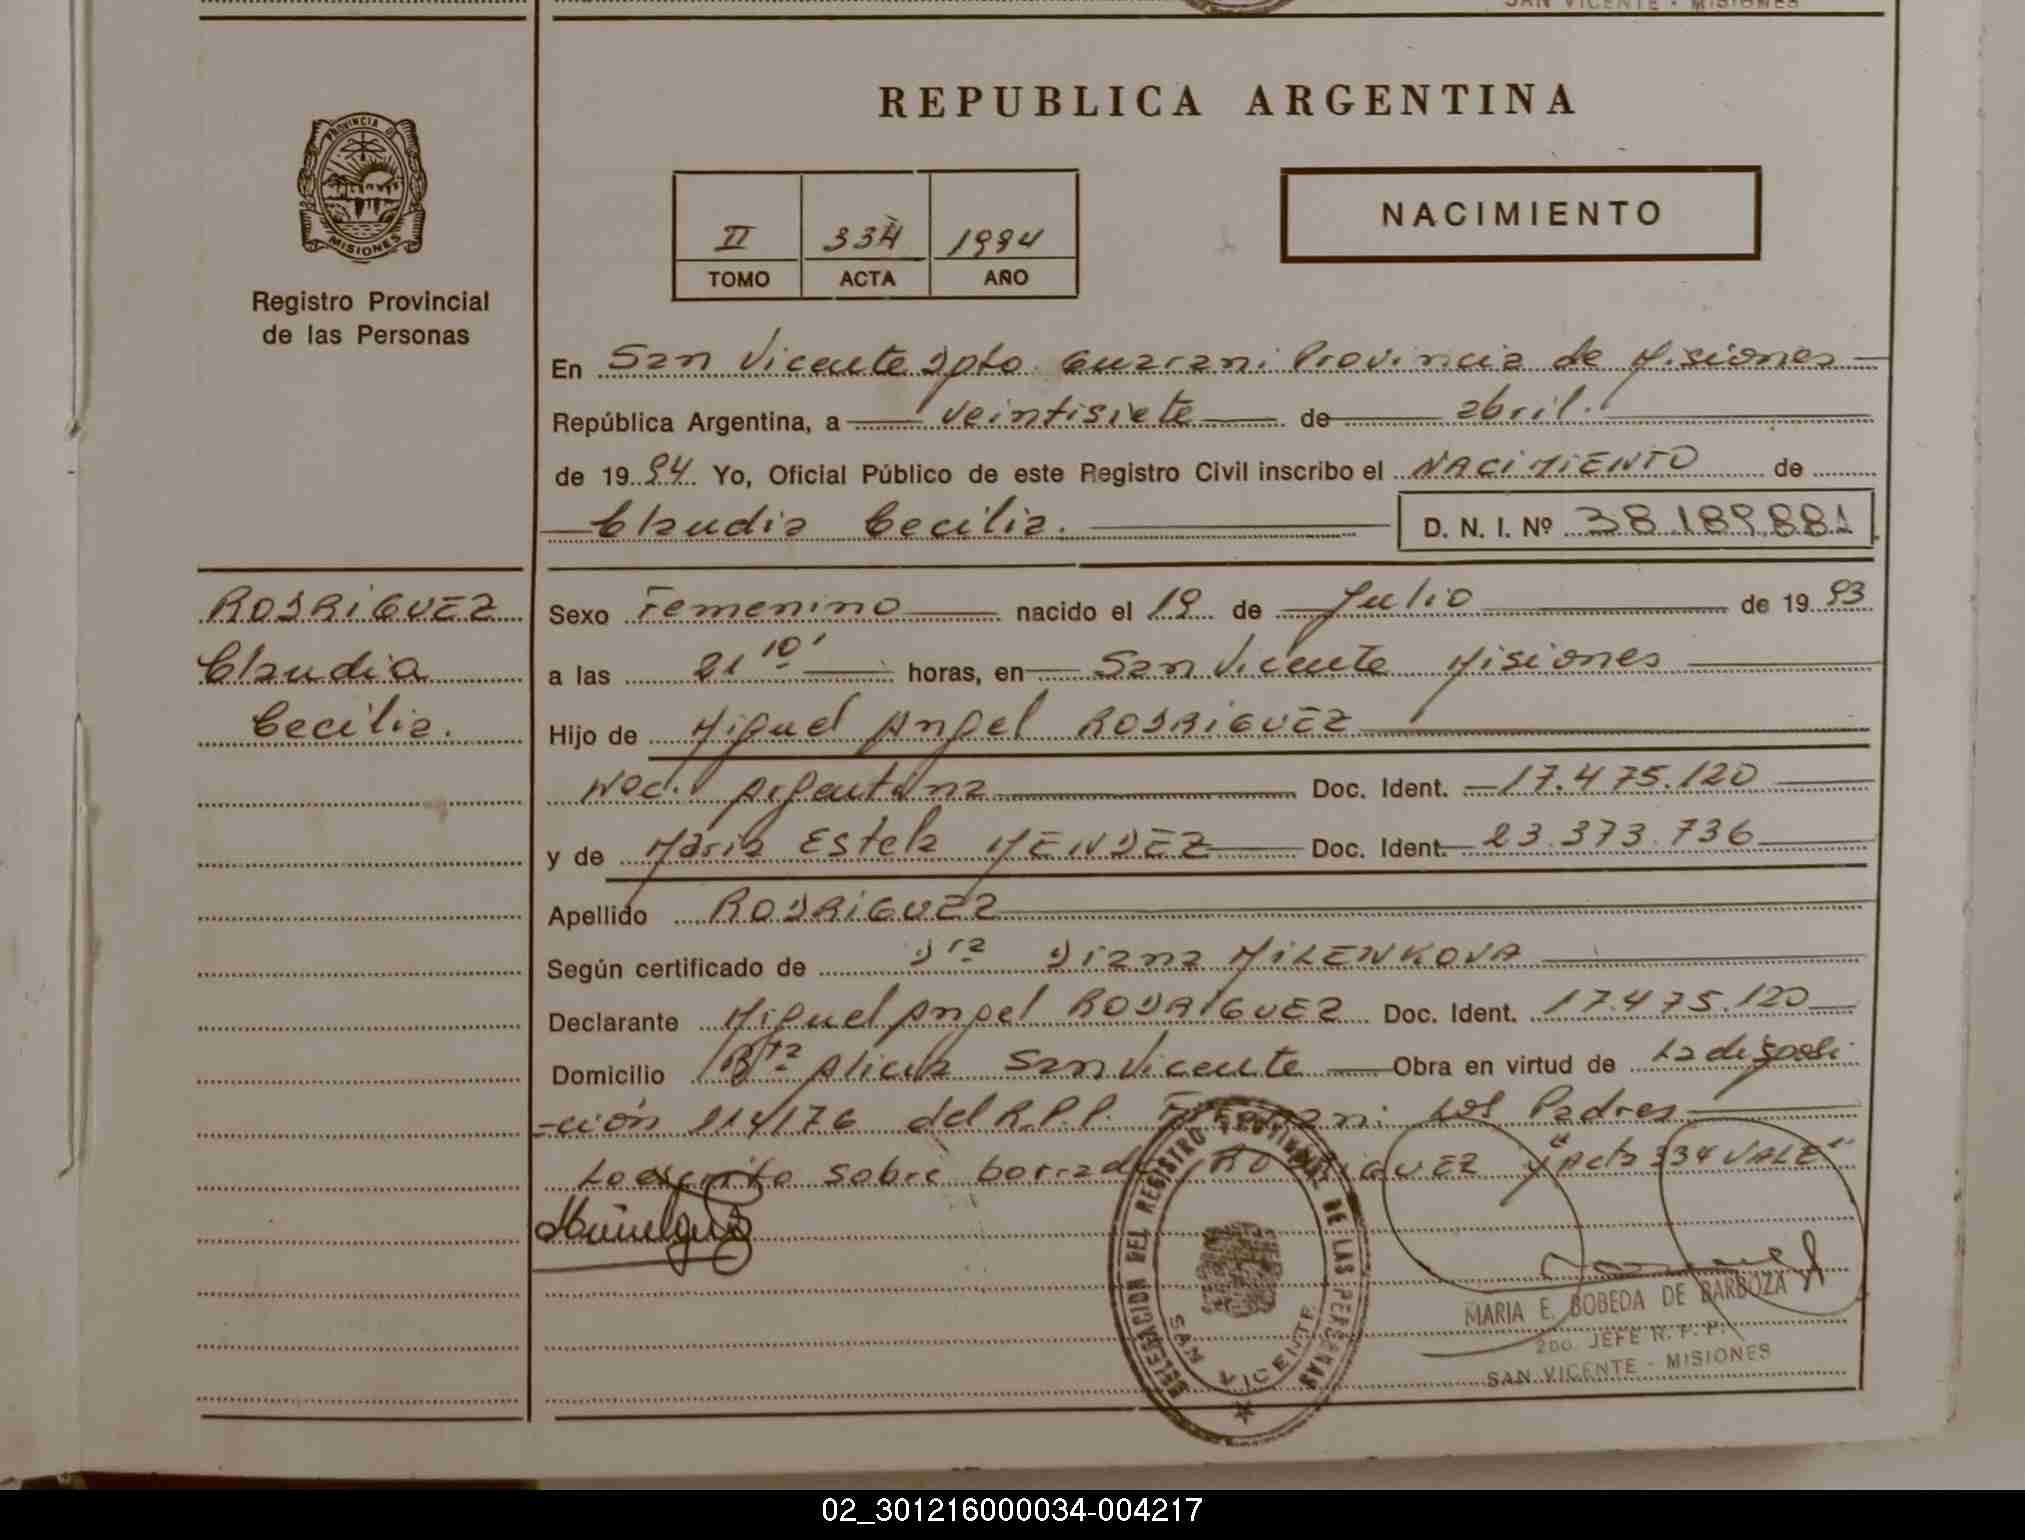 SAN VICENTE - MISIONES
REPUBLICA ARGENTINA
PROVINCIA DE
MISIONES
Registro Provincial
de las Personas
II 334 1994
TOMO ACTA AÑO
NACIMIENTO
En San Vicente Dpto Guarani Provincia de Misiones
República Argentina, a veintisiete de abril.
de 1994 Yo, Oficial Público de este Registro Civil inscribo el NACIMIENTO de
Claudia Cecilia. D. N. I. Nº 38.189.881
RODRIGUEZ
Claudia
Cecilia.
Sexo Femenino nacido el 19 de Julio de 1993
a las 21 10' horas, en San Vicente Misiones
Hijo de Miguel Angel RODRIGUEZ
Nac. Argentina Doc. Ident. 17.475.120
y de Maria Estela MENDEZ Doc. Ident. 23.373.736
Apellido RODRIGUEZ
Según certificado de Dra Diana MILENKOVA
Declarante Miguel Angel RODRIGUEZ Doc. Ident. 17.475.120
Domicilio Bta Alicia San Vicente Obra en virtud de La disposi
-ción 114/76 del R.P.P. Firman: Los Padres
Lo escrito sobre borrado RODRIGUEZ y "Acta 334 VALE"
DELEGACION DEL REGISTRO PROVINCIAL DE LAS PERSONAS
SAN VICENTE
MARIA E. BOBEDA DE BARBOZA
2do. JEFE R. P. P.
SAN VICENTE - MISIONES
02_301216000034-004217